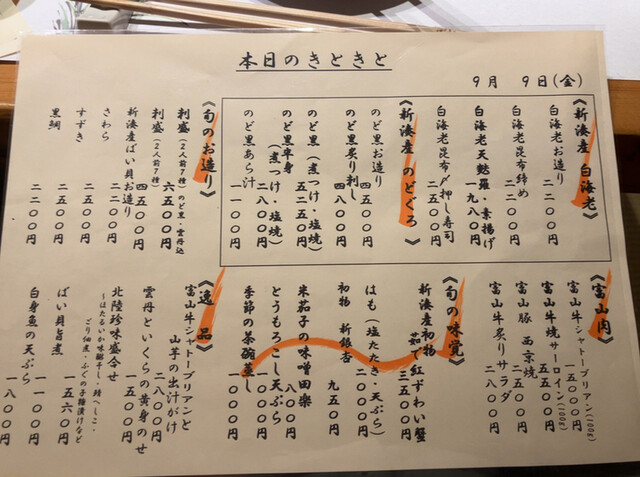 本日のきときと
9月 9日(金)
《新湊産 白海老》
白海老お造り 二二〇〇円
白海老昆布締め 二二〇〇円
白海老天麩羅・素揚げ 一九八〇円
白海老昆布〆押し寿司 二五〇〇円
《新湊産 のどぐろ》
のど黒お造り 四五〇〇円
のど黒炙り刺し 四八〇〇円
のど黒(煮つけ・塩焼) 五二五〇円
のど黒半身(煮つけ・塩焼) 二八〇〇円
のど黒あら汁 一一〇〇円
《旬のお造り》
利盛(2人前7種)のど黒・雲丹込 六五〇〇円
利盛(2人前7種) 四五〇〇円
新湊産ばい貝お造り 二二〇〇円
さわら 二五〇〇円
すずき 二五〇〇円
黒鯛 二二〇〇円
《富山肉》
富山牛シャトーブリアン(100g) 一五〇〇〇円
富山牛焼サーロイン(100g) 五五〇〇円
富山豚 西京焼 二五〇〇円
富山牛炙りサラダ 二八〇〇円
《旬の味覚》
新湊産初物 茹で紅ずわい蟹 三五〇〇円
はも(塩たたき・天ぷら) 二〇〇〇円
初物 新銀杏 九五〇円
米茄子の味噌田楽 八〇〇円
とうもろこし天ぷら 一〇〇〇円
季節の茶碗蒸し 一〇〇〇円
《逸品》
富山牛シャトーブリアンと
山芋の出汁がけ 二八〇〇円
雲丹といくらの黄身のせ 一五〇〇円
北陸珍味盛合せ 一五〇〇円
~ほたるいか味醂干し・鯖へしこ・
ごり佃煮・ふぐの子糠漬けなど
ばい貝旨煮 一五六〇円
白身魚の天ぷら 一八〇〇円